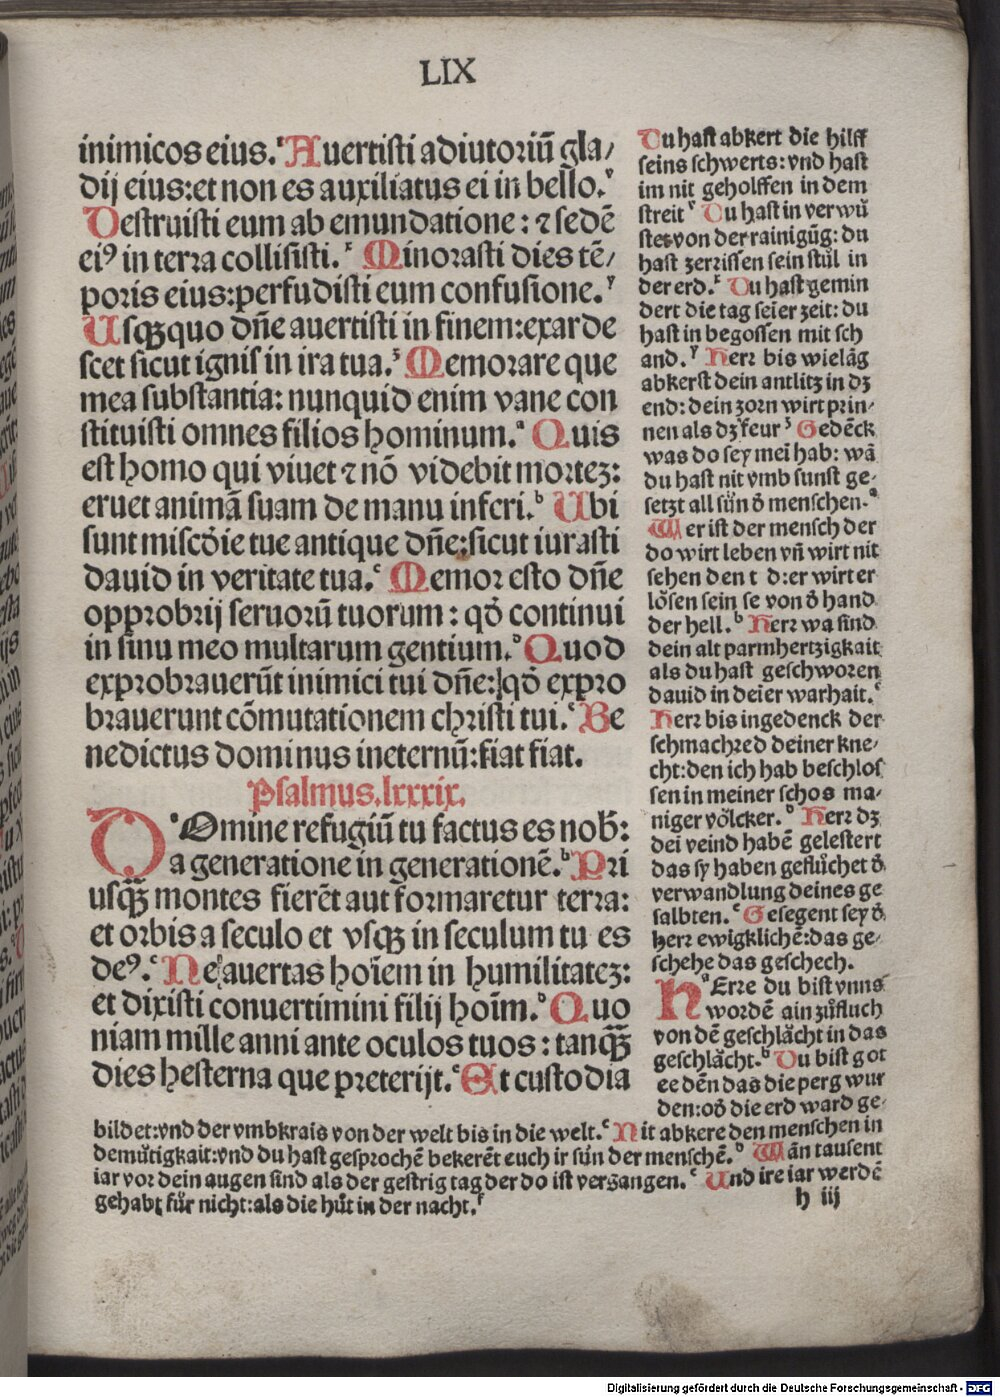 LIX
inimicos eius.ͭ Auertisti adiutoriū gla/
dij eius:et non es auxiliatus ei in bello.ᵛ
Destruisti eum ab emundatione: ⁊ sedē
eiꝰ in terra collisisti.ˣ Minorasti dies tē/
poris eius:perfudisti eum confusione.ʸ
Usq̄quo dn̄e auertisti in finem:exarde
scet sicut ignis in ira tua.ᶻ Memorare que
mea substantia: nunquid enim vane con
stituisti omnes filios hominum.ᵃ Quis
est homo qui viuet ⁊ nō videbit mortez:
eruet animā suam de manu inferi.ᵇ Ubi
sunt misc̄die tue antique dn̄e:sicut iurasti
dauid in veritate tua.ᶜ Memor esto dn̄e
opprobrij seruorū tuorum: qd̄ continui
in sinu meo multarum gentium.ᵈ Quod
exprobrauerūt inimici tui dn̄e:qd̄ expro
brauerunt cōmutationem christi tui.ᵉ Be
nedictus dominus ineternū:fiat fiat.
Psalmus.lxxxix.
Dᵃ Omine refugiū tu factus es nob̄:
a generatione in generationē.ᵇ Pri
usq̄ montes fierēt aut formaretur terra:
et orbis a seculo et vsq̄ in seculum tu es
deꝰ.ᶜ Ne auertas hoīem in humilitatez:
et dixisti conuertimini filij hoīm.ᵈ Quo
niam mille anni ante oculos tuos: tanq̄
dies hesterna que preterijt.ᵉ Et custodia
Du hast abkert die hilff
seins schwerts:vnd hast
im nit geholffen in dem
streitᵛ Du hast in verwü
stet von der rainigūg: du
hast zerrissen sein stůl in
der erd.ˣ Du hast gemin
dert die tag seier zeit: du
hast in begossen mit sch
and.ʸ Herr bis wielāg
abkerst dein antlitz in dz
end: dein zorn wirt prin/
nen als dz feurᶻ Gedēck
was do sey mei hab: wā
du hast nit vmb sunst ge/
setzt all sün d̄ menschen.ᵃ
Wer ist der mensch der
do wirt leben vn̄ wirt nit
sehen den t d:er wirt er
lösen sein se von d̄ hand
der hell.ᵇ Herr wa sind
dein alt parmhertzigkait
als du hast geschworen
dauid in deier warhait.ᶜ
Herr bis ingedenck der
schmachred deiner kne/
cht:den ich hab beschlos
sen in meiner schos ma/
niger völcker.ᵈ Herr dz
dei veind habē gelestert
das sy haben geflůchet d̄
verwandlung deines ge
salbten.ᵉ Gesegent sey d̄
herr ewigklichē:das ge/
schehe das geschech.
Hᵃ Erre du bist vnns
wordē ain zůfluch
von dē geschlächt in das
geschlächt.ᵇ Du bist got
ee dēn das die perg wur
den:od̄ die erd ward ge/
bildet:vnd der vmbkrais von der welt bis in die welt.ᶜ Nit abkere den menschen in
demütigkait:vnd du hast gesprochē bekerēt euch ir sün der menschē.ᵈ Wān tausent
iar vor dein augen sind als der gestrig tag der do ist vergangen.ᵉ Und ire iar werdē
gehabt für nicht:als die hůt in der nacht.ᶠ
h iij
Digitalisierung gefördert durch die Deutsche Forschungsgemeinschaft - DFG